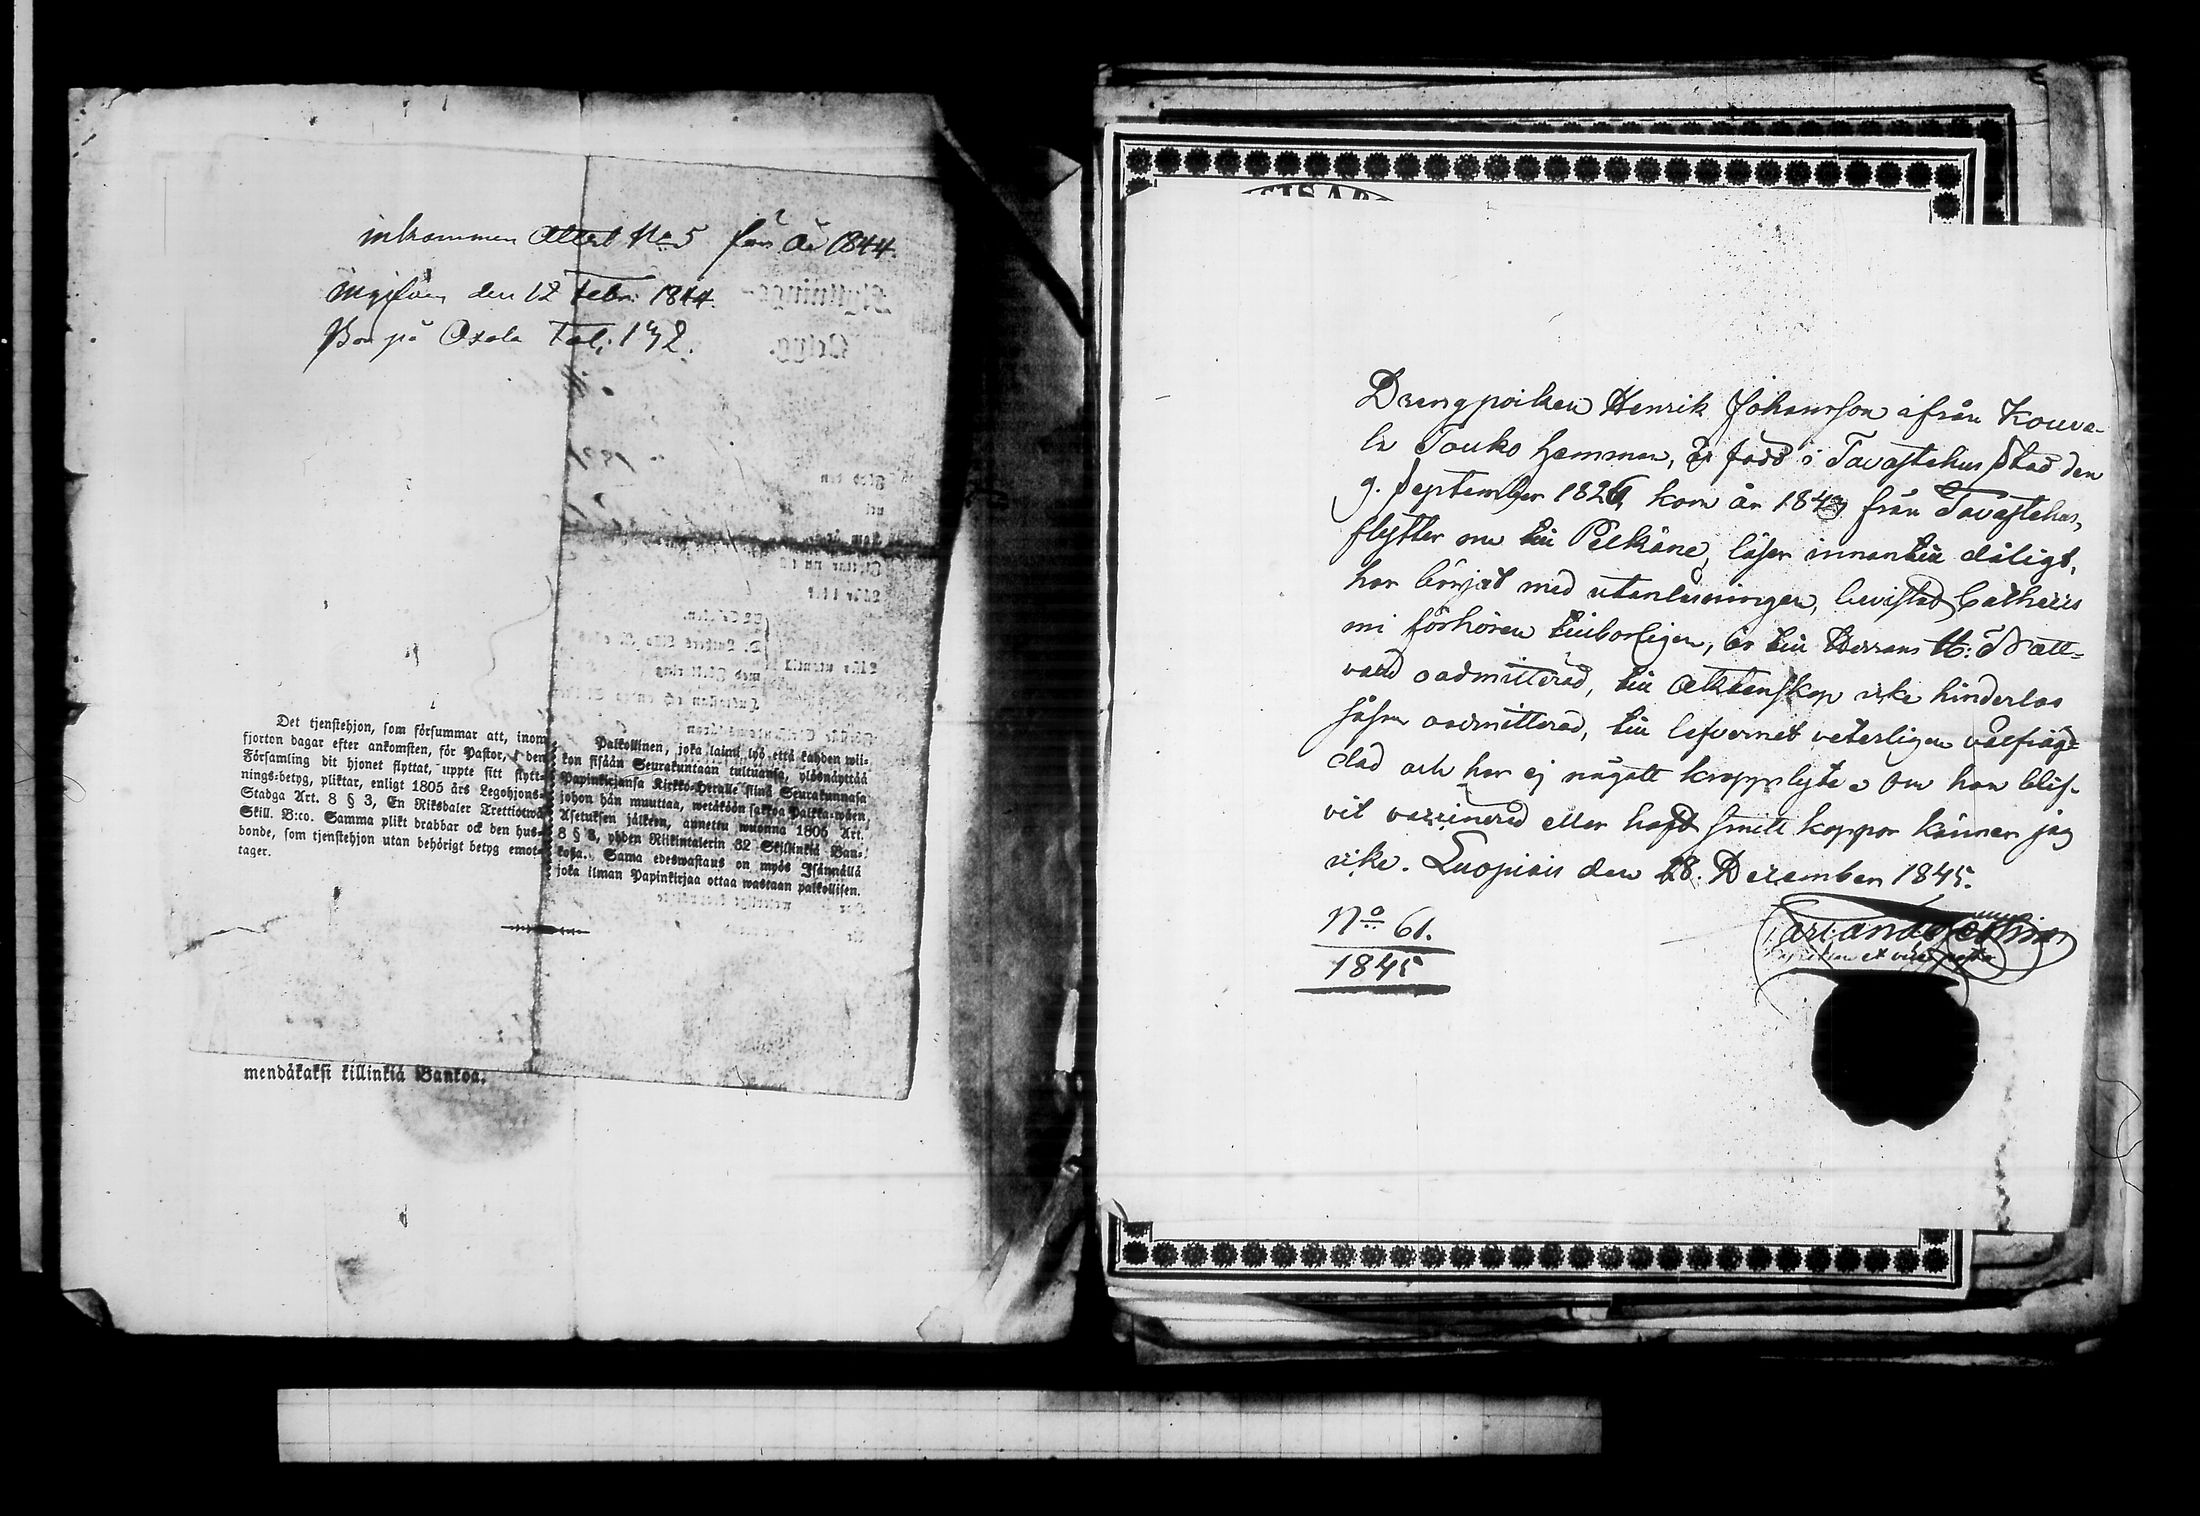 inkommen Attest No 5 för År 1844.
Uppgifven den 12 Febr. 1844.
Bor på Oxala Fol. 132.
Det tjenstehjon, som försummar att, inom
fjorton dagar efter ankomsten, för Pastor, i den
Församling dit hjonet flyttat, uppte sitt flytt-
nings-betyg, pliktar, enligt 1805 års Legohjons-
Stadga Art. 8 § 3, En Riksdaler Trettiotwå
Skill. B:co. Samma plikt drabbar ock den hus-
bonde, som tjenstehjon utan behörigt betyg emot-
tager.
Palkollinen, joka laimi lyö että kahden wii-
kon sisään Seurakuntaan tultuansa, ylösnäyttää
Papinkirjansa Kirkko-Herralle siinä Seurakunnasa
johon hän muuttaa, wetäköön sakkoa Palkka-wäen
Asetuksen jälkeen, annettu wuonna 1805 Art.
8 § 3, yhden Riikintalerin 32 Skillinkiä Ban-
kosa. Sama edeswastaus on myös Isännällä
joka ilman Papinkirjaa ottaa wastaan palkollisen.
mendäkaksi killinkiä Bankoa.
Drengpoiken Henrik Johansson ifrån Kouva-
la Touko hemman, är född i Tavastehus Stad den
9. September 1826, kom år 1843 från Tavastehus,
flytter nu till Pelkäne, läser innantill dåligt,
har börjat med utanläsningen, bevistad Catheis
mi förhören tillbörligen, är till Herrans H: Natt-
vard oadmitterad, till Äktenskap icke hinderlös
såsom oadmitterad, till lefvernet veterligen välfräg-
dad och har ej någott kroppslyte. Om han blif-
vit vaccinered eller haft smitt koppor känner jag
icke. Luopiois den 18. December 1845.
No 61.
1845